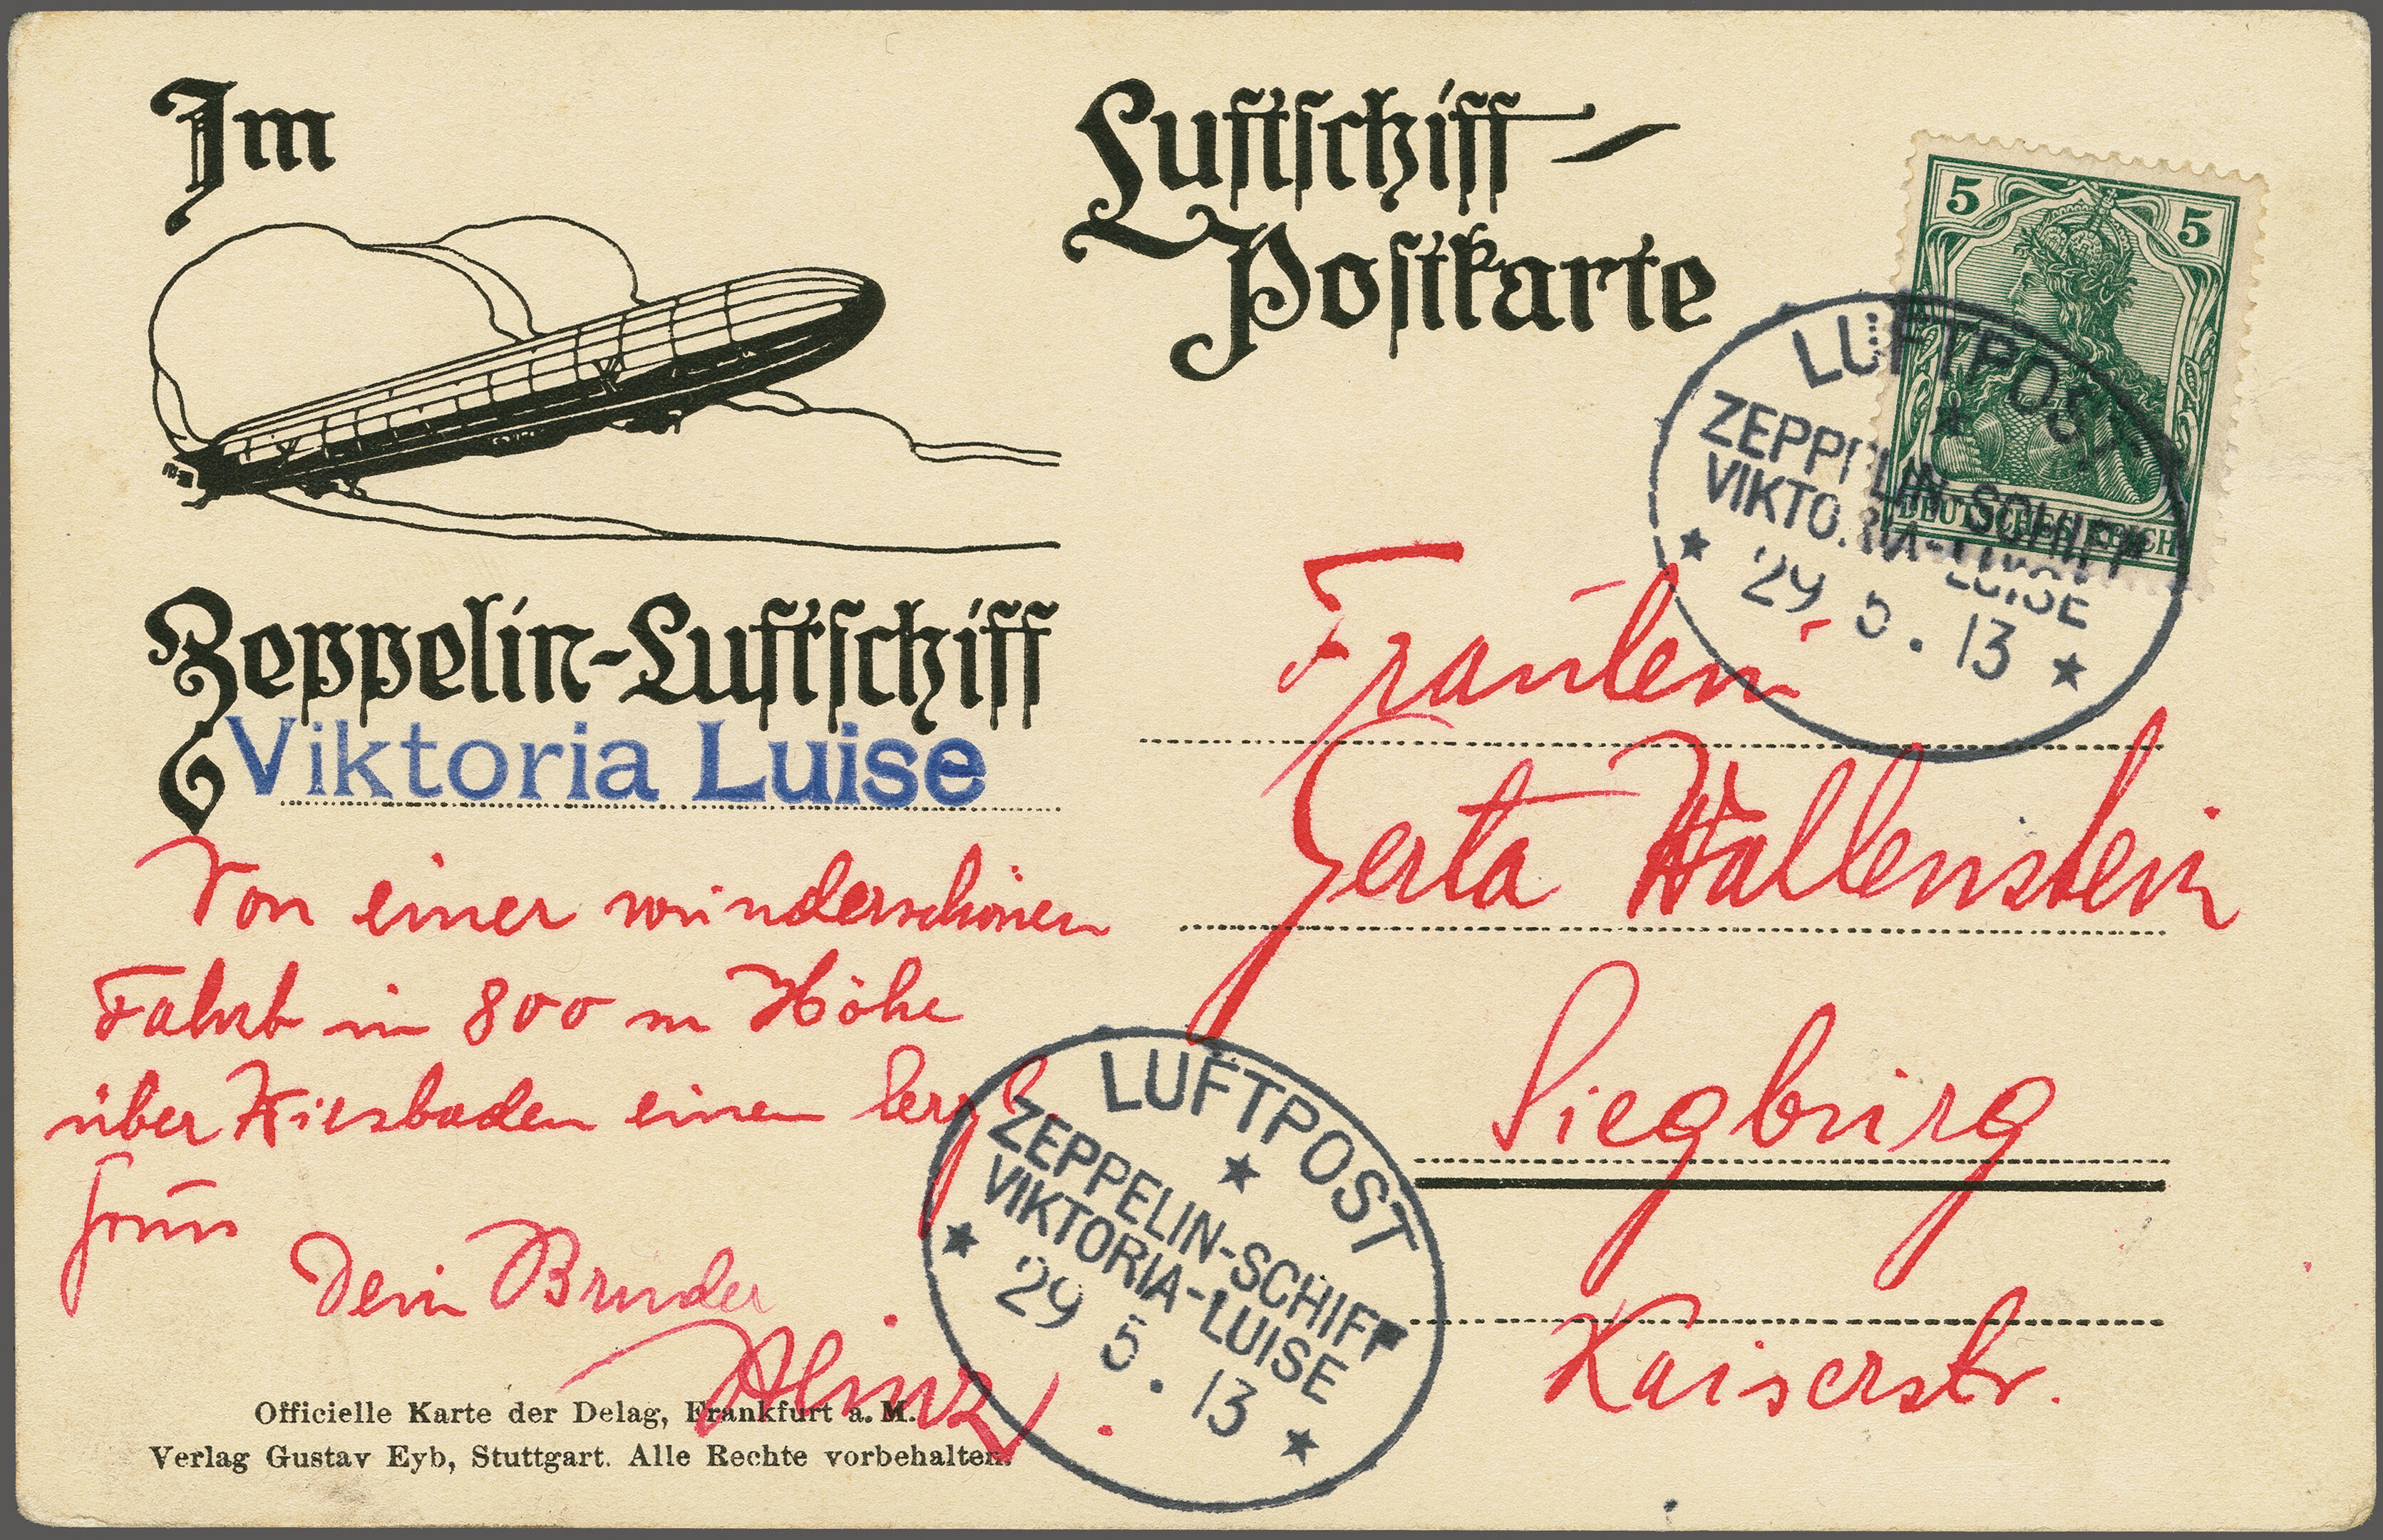 Im
Luftschiff-
Postkarte
5 5
DEUTSCHES REICH
LUFTPOST
ZEPPELIN-SCHIFF
VIKTORIA-LUISE
29. 5. 13
Zeppelin-Luftschiff
Viktoria Luise
Von einer wunderschönen
Fahrt in 800 m Höhe
über Wiesbaden einen herzl.
Gruss
Dein Bruder
Fräulein
Gerta Wallenstein
Siegburg
Kaiserstr.
LUFTPOST
ZEPPELIN-SCHIFF
VIKTORIA-LUISE
29 5. 13
Officielle Karte der Delag, Frankfurt a. M.
Verlag Gustav Eyb, Stuttgart. Alle Rechte vorbehalten.